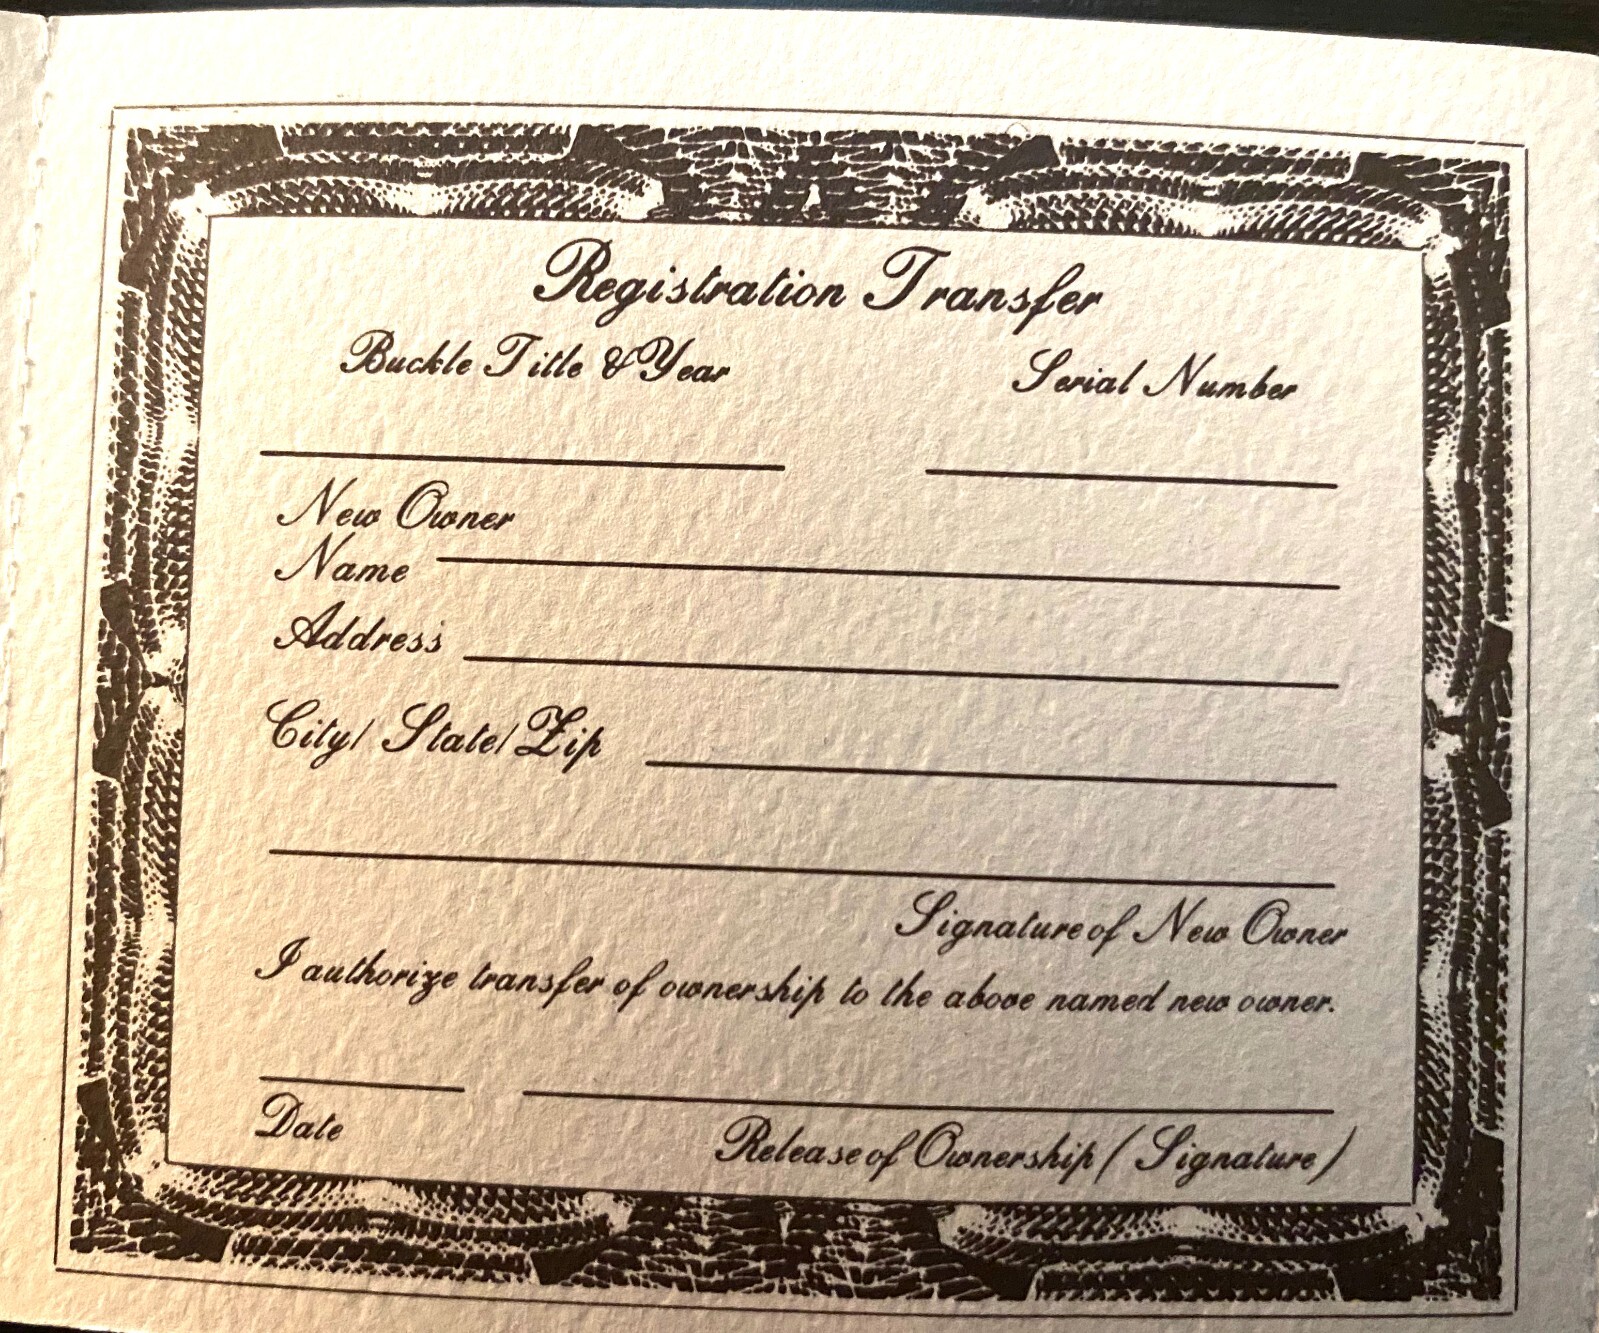 Registration Transfer
Buckle Title & Year Serial Number
New Owner
Name
Address
City/ State/ Zip
Signature of New Owner
I authorize transfer of ownership to the above named new owner.
Date Release of Ownership (Signature)